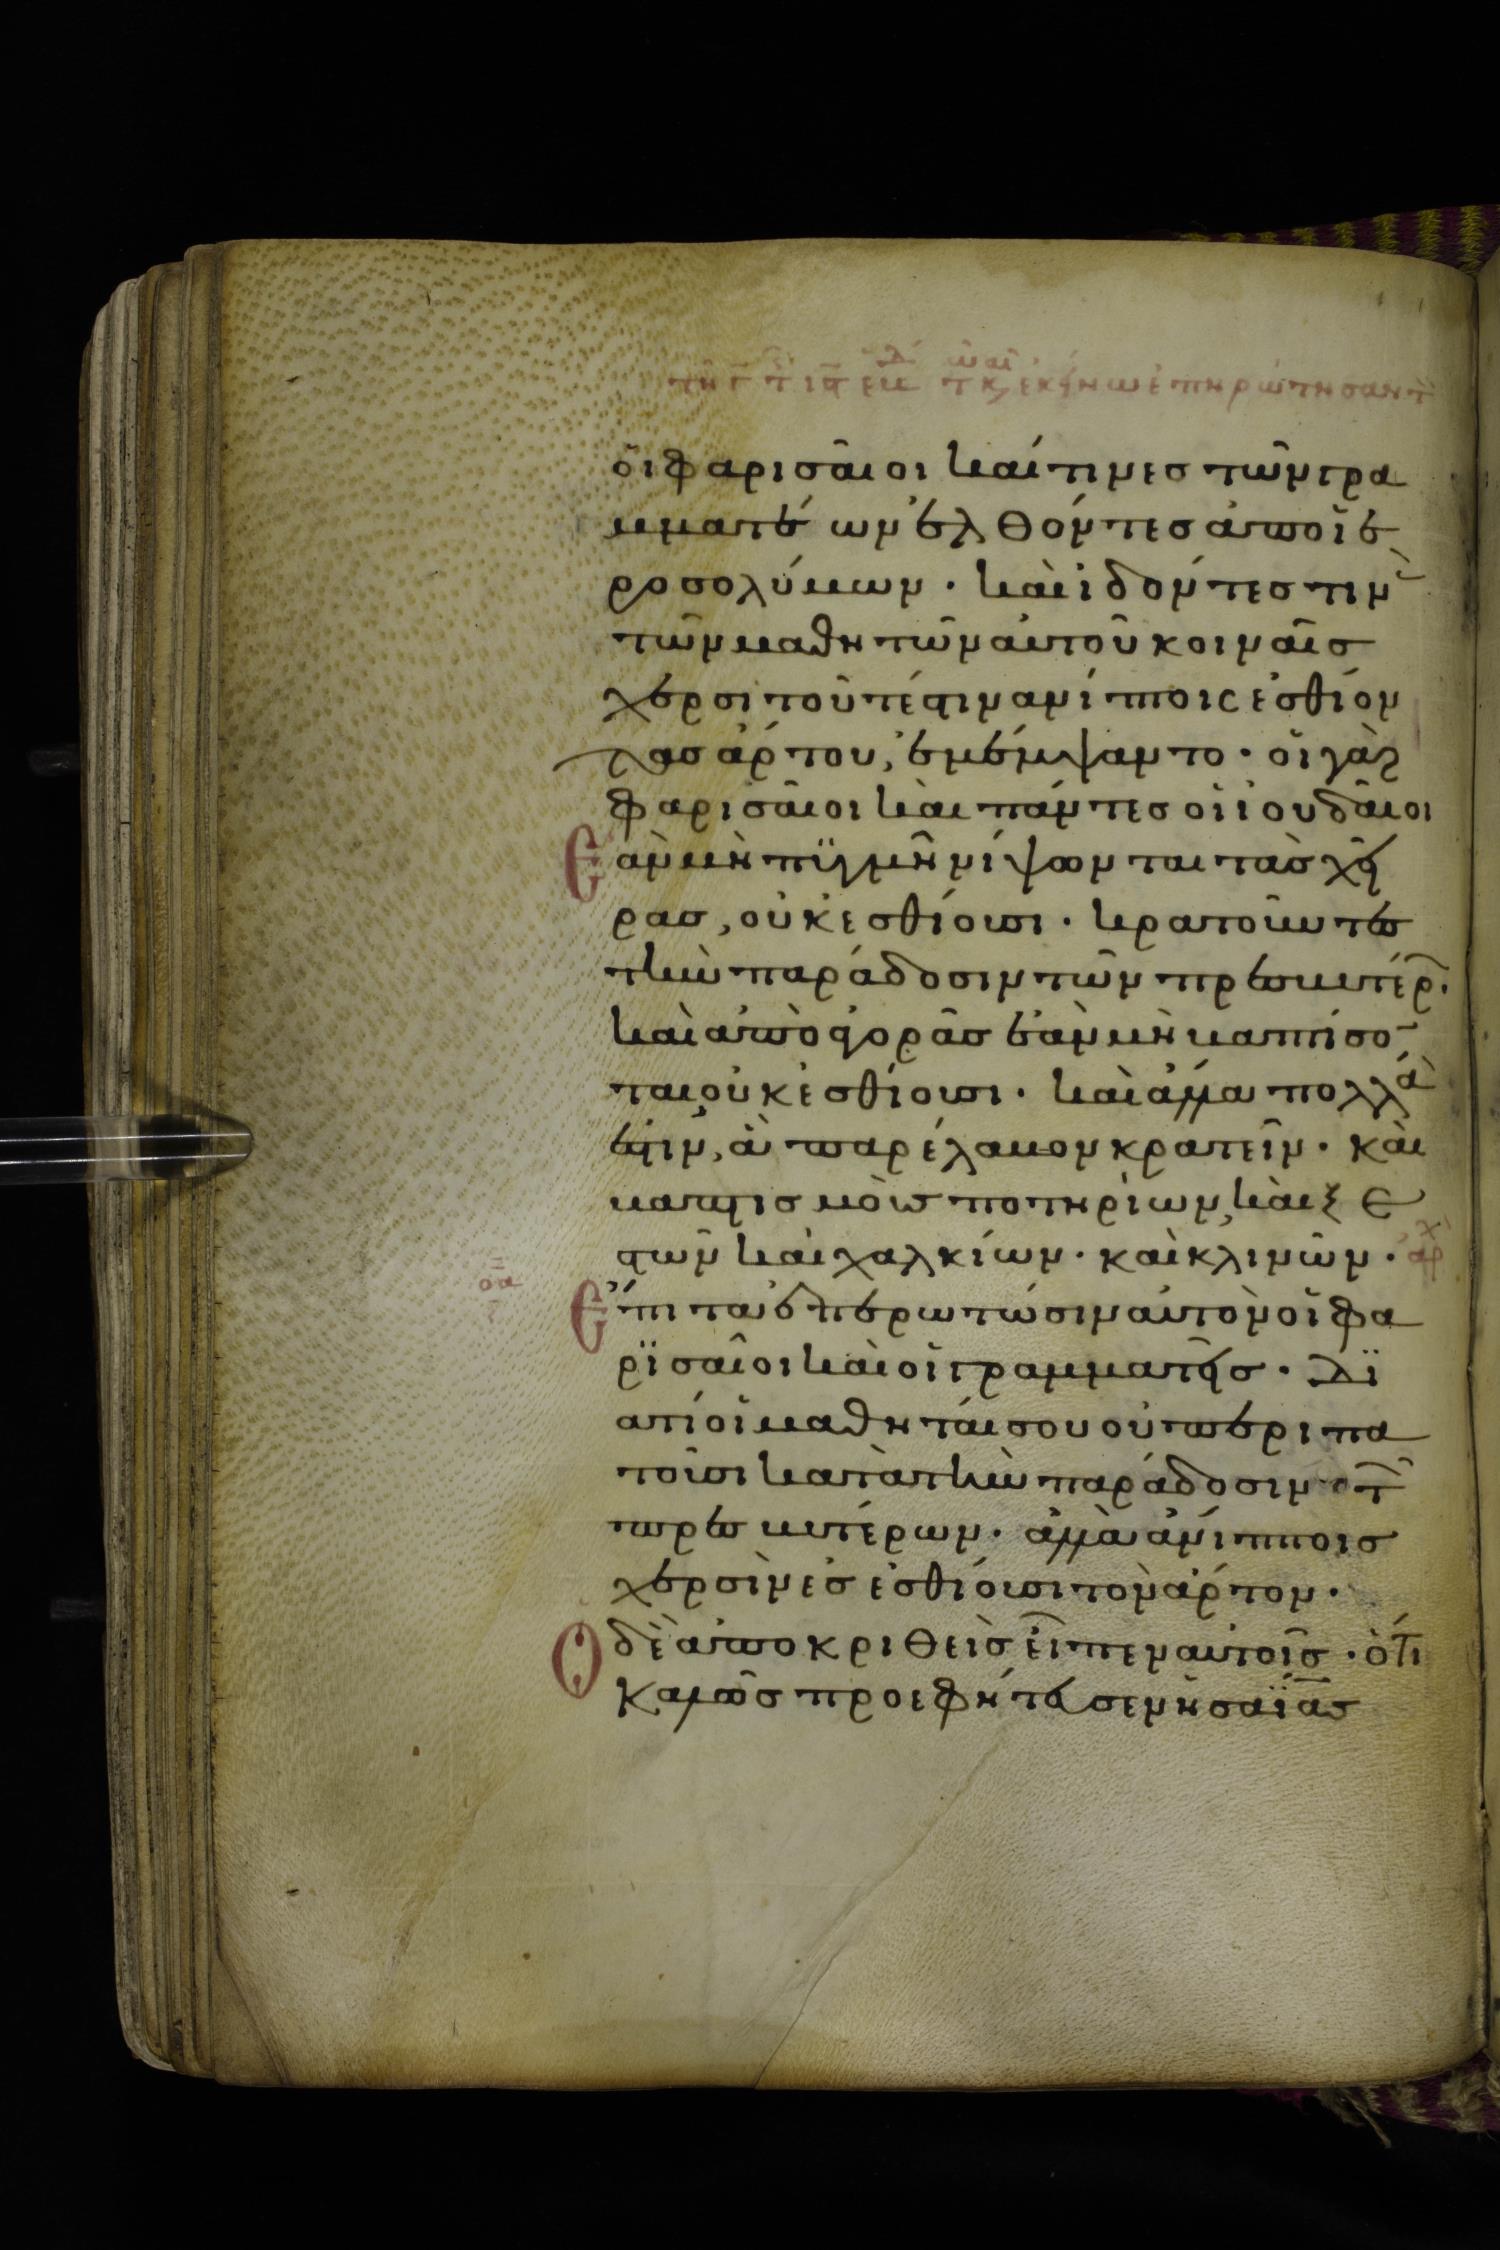 οἱ φαρισαῖοι καί τινες τῶν γρα
μματέων ἐλθόντες ἀπο ἱε
ροσολύμων · καὶ ἰδόντες τινὰς
τῶν μαθητῶν αὐτοῦ κοιναῖς
χερσὶ τοῦτέστιν ἀνίπτοις ἐσθίον
τας ἄρτους, ἐμέμψαντο · οἱ γὰρ
φαρισαῖοι καὶ πάντες οἱ ἰουδαῖοι
Ἐὰν μὴ πϊγμῆ νίψωνται τὰς χεῖ
ρας, οὐκ ἐσθίουσι · κρατοῦντες
τὴν παράδοσιν τῶν πρεσβυτέρ ·
καὶ ἀπὸ ἀγορᾶς ἐὰν μὴ βαπτίσο
ται οὐκ ἐσθίουσι · καὶ ἄλλα πολλά
ἐστιν, ἃ παρέλαβον κρατεῖν · καὶ
βαπτισμοὺς ποτηρίων, καὶ ξε
στῶν καὶ χαλκίων · καὶ κλινῶν · ἀρχ
οα
Ἔπιτα ἐπερωτῶσιν αὐτὸν οἱ φα
ρϊσαῖοι καὶ οἱ γραμματεῖς · Δϊ
ατί οἱ μαθηταί σου οὐ περιπα
τοῦσι κατὰ τὴν παράδοσιν τ
πρεσβυτέρων · ἀλλὰ ἀνίπτοις
χερσὶν ἐσθίουσι τὸν ἄρτον ·
Ὁ δὲ ἀποκριθεὶς εἶπεν αὐτοῖς · ὅτι
καλῶς προεφήτευσεν ἡσαΐας